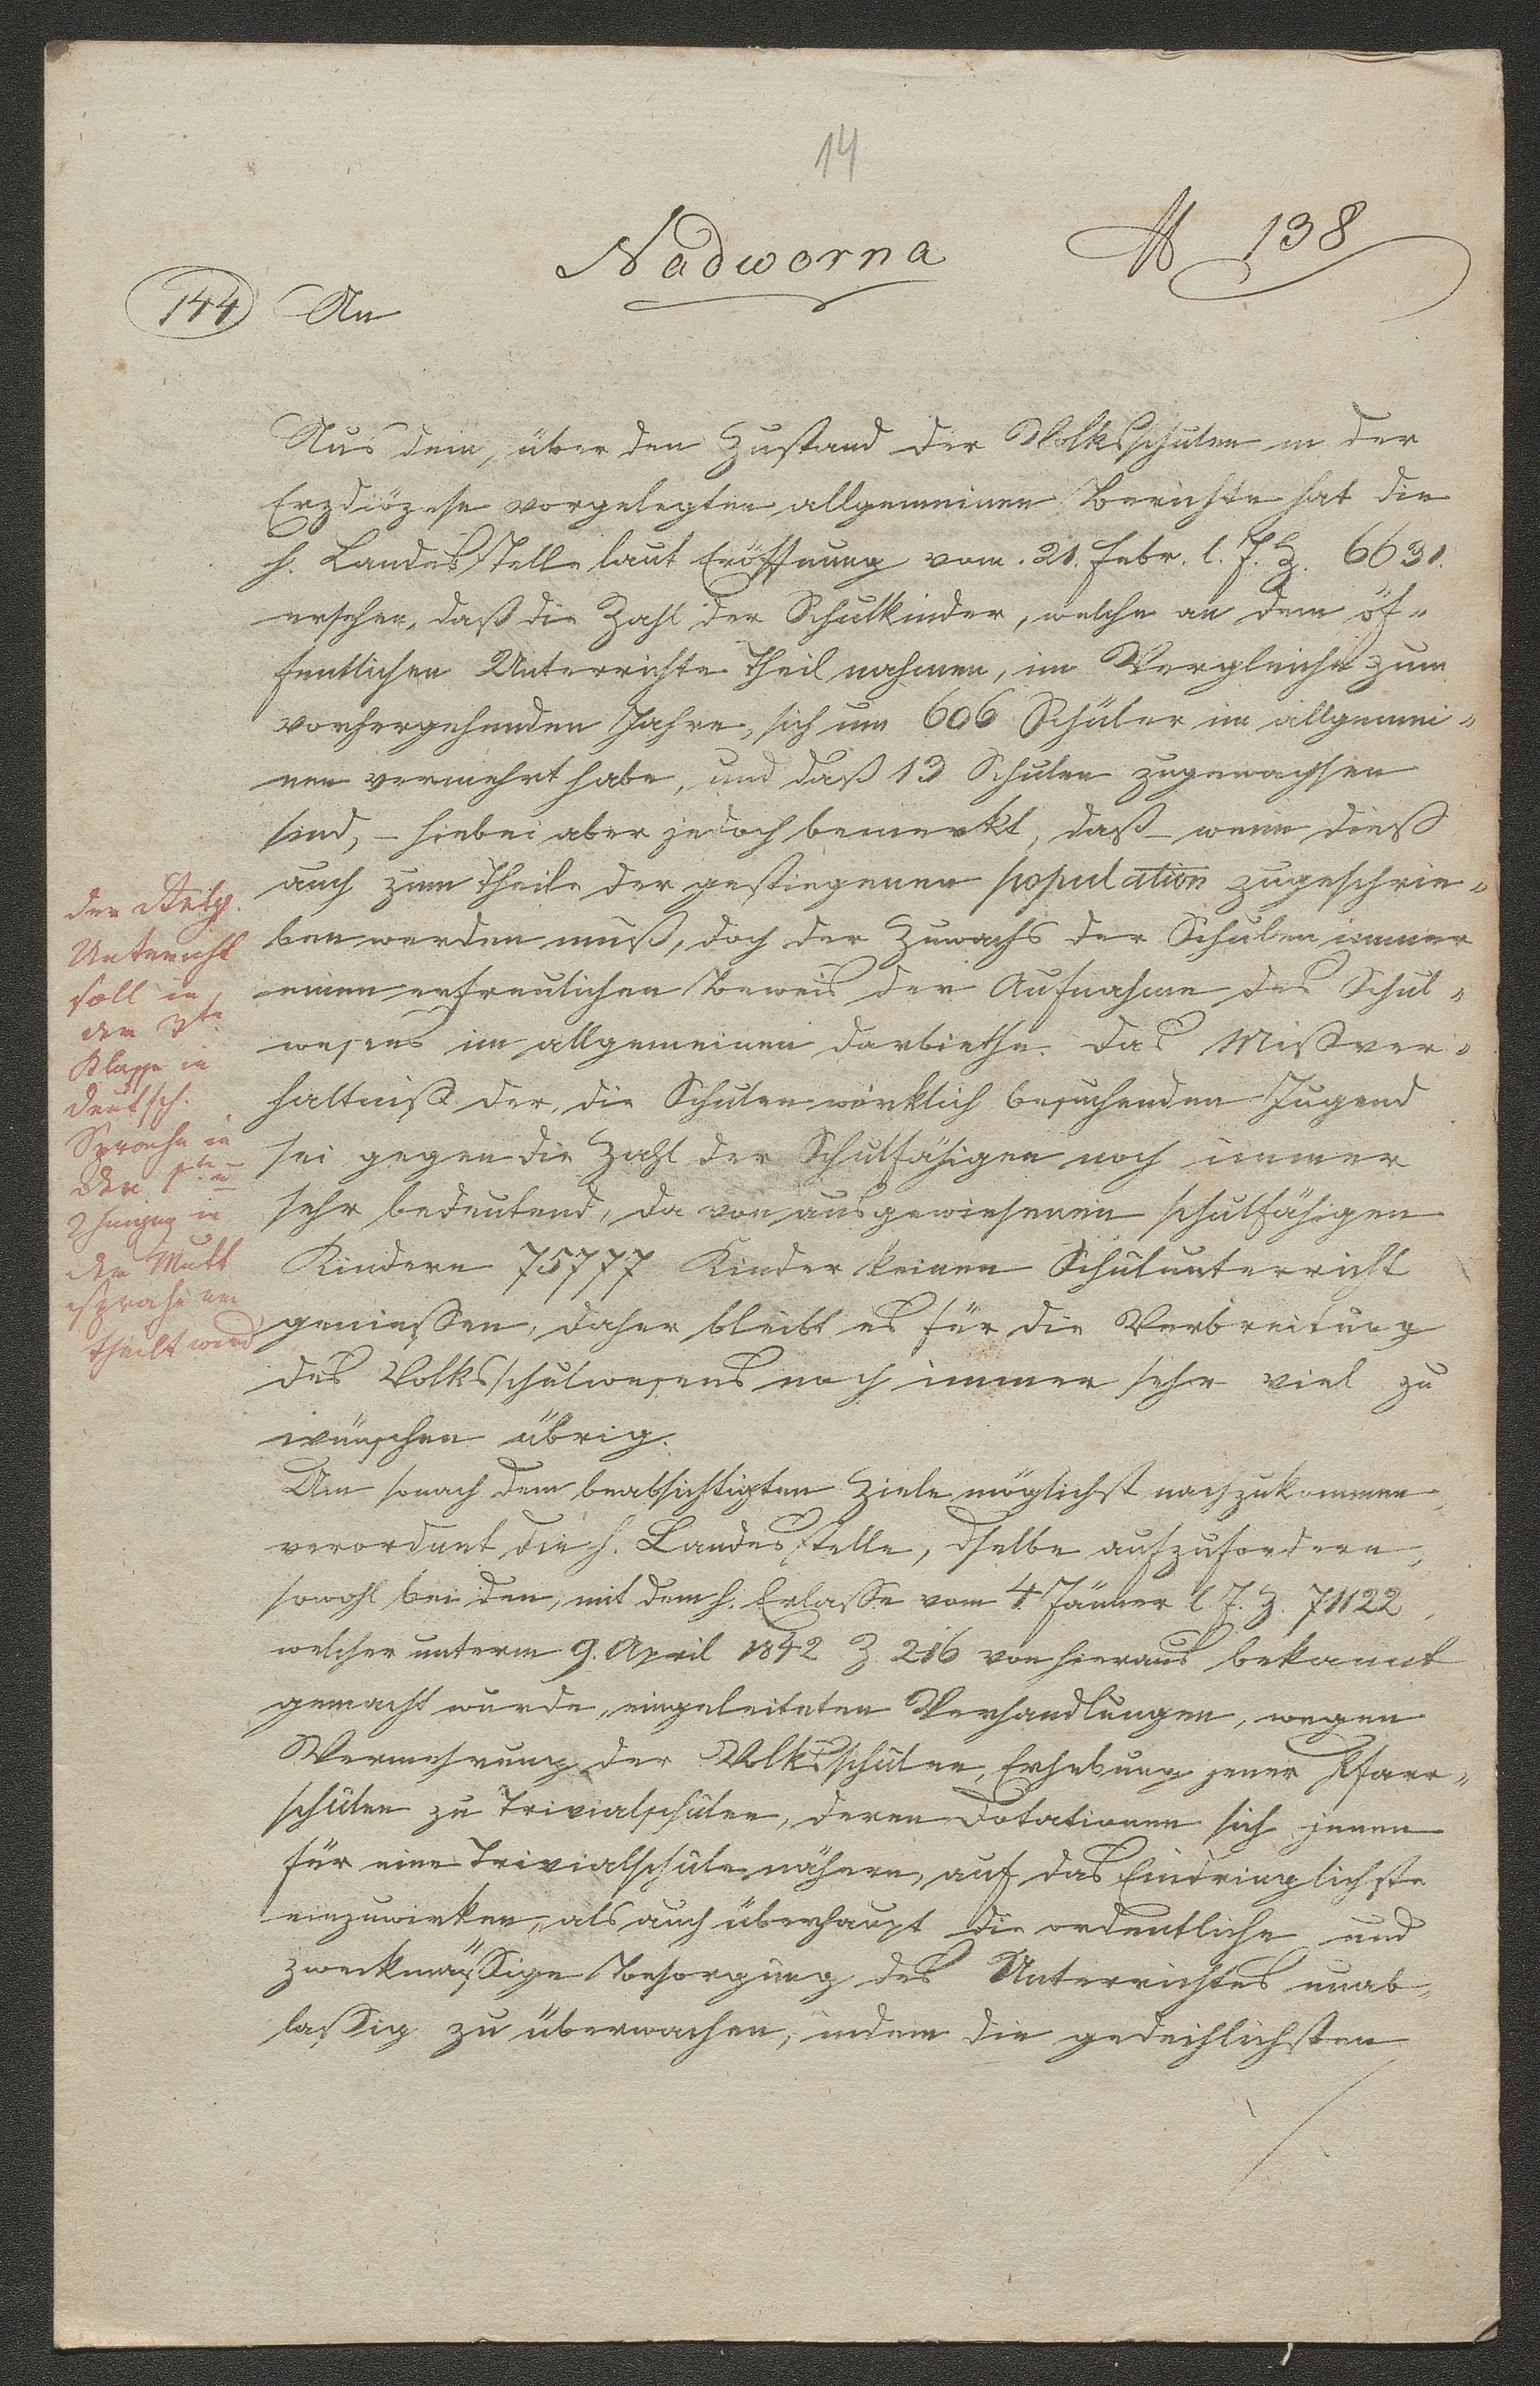 14
Nadworna
№ 138
144
An
Aus dem, über den Zustand der Volksschulen in der
Erzdiözese vorgelegten allgemeinen Berichte hat die
h. Landesstelle laut Eröffnung vom 21. Febr. l. J. Z. 6631.
ersehen, daß die Zahl der Schulkinder, welche an dem öf-
fentlichen Unterrichte Theil nahmen, im Vergleiche zum
vorhergehenden Jahre, sich um 606 Schüler im allgemei-
nen vermehrt habe, und daß 13 Schulen zugewachsen
sind, – hiebei aber jedoch bemerkt, daß – wenn dieß
auch zum Theile der gestiegenen population zugeschrie-
ben werden muß, doch der Zuwachs der Schulen immer
einen erfreulichen Beweis der Aufnahme des Schul-
wesens im allgemeinen darbiethe. Das Mißver-
haltniß der, die Schulen wirklich besuchenden Jugend
sei gegen die Zahl der Schulfähigen noch immer
sehr bedeutend, da von ausgewiesenen schulfähigen
Kindern 75777 Kinder keinen Schulunterricht
genießen, daher bleibt es für die Verbreitung
des Volksschulwesens noch immer sehr viel zu
wünschen übrig.
Um sonach dem beabsichtigten Ziele möglichst nachzukommen,
verordnet die h. Landesstelle, dselbe aufzufordern,
sowohl bei den, mit dem h. Erlaße vom 4 Jänner l. J. Z. 71122,
welcher unterm 9. April 1842 Z. 216 von hieraus bekannt
gemacht wurde, eingeleiteten Verhandlungen, wegen
Vermehrung der Volksschulen, Erhebung jener Pfarr-
schulen zu Trivialschulen, deren Dotationen sich jenen
für eine Trivialschule nähern, auf das Eindringlichste
einzuwirken, als auch überhaupt die ordentliche und
zweckmäßige Besorgung des Unterrichtes unab-
laßig zu überwachen, indem die gedeihlichsten
der Relig.
Unterricht
soll in
der 3te
Klasse in
deutsch.
Sprache in
der 1te u
2
der Mutt
sprache er
theilt werd